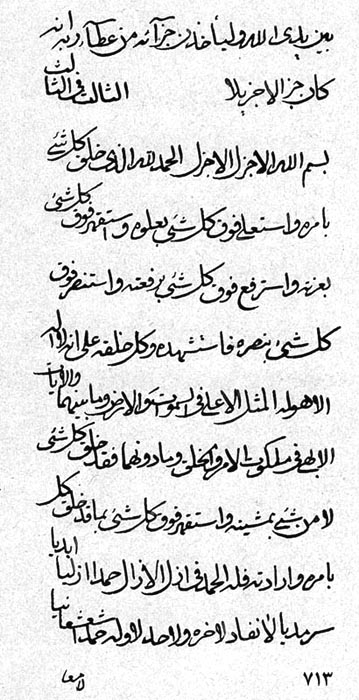 بين يدي الله وليأخذن جزآئه من عطآء ربه انه
كان جزالا جزيلا الثالث في الثالث
بسم الله الاجزل الاجزل الحمد لله الذي خلق كل شئ
بامره واستعلى فوق كل شئ بعلوه واستقهر فوق كل شئ
بعزته واسترفع فوق كل شئ برفعته واستنصر فوق
كل شئ بنصره فاستشهده وكل خلقه على انه لا اله
الا هو له المثل الاعلى في السموات والارض وما بينهما والايات
الابهى في ملكوت الامر والخلق وما دونهما فقد خلق كل شئ
لا من شئ بمشيته واستقهر فوق كل شئ بما قد خلق كل
بامره وارادته فله الحمد في ازل الازال حمدا ازليا ابديا
سرمديا لا نفاد لاخره ولا حد لاوله حمدا شعشعانيا
٧١٣